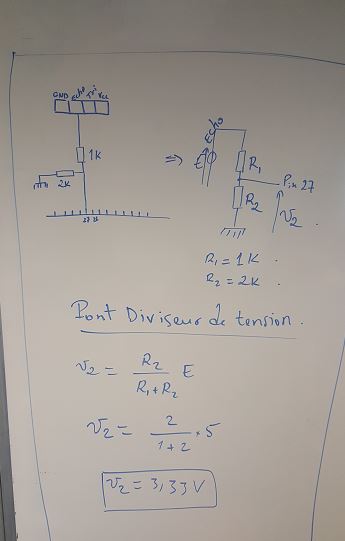 GND Echo Tri Vcc
1K
2K
27 28
=>
Echo
E
R1
R2
Pin 27
V2
R1 = 1K
R2 = 2K
Pont Diviseur de tension.
V2 = R2 / R1 + R2 E
V2 = 2 / 1 + 2 * 5
V2 = 3,33 V